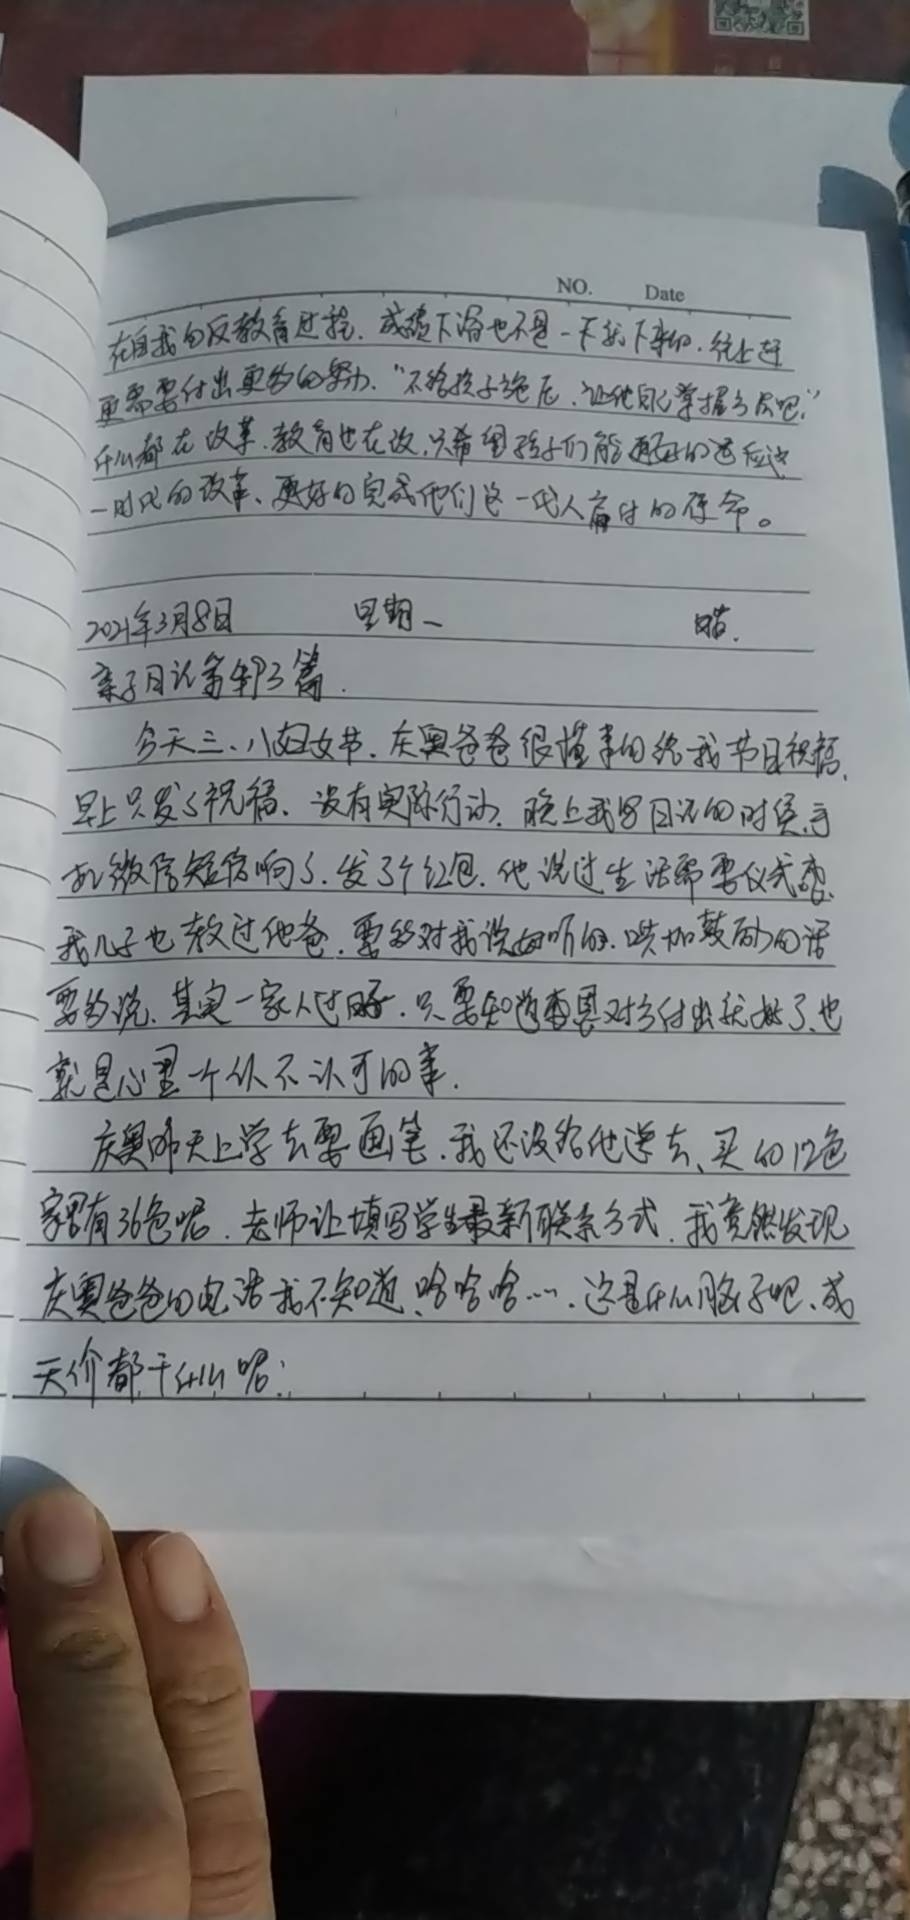 NO. Date
在自我的反教育过程,成绩下滑也不是一下就下来的,往上赶
更需要付出更多的努力,“不给孩子绝后,让他自己掌握方后吧,”
什么都在改革,教育也在改,只希望孩子们能更好的适应这
一时代的改革、更好的完成他们这一代人肩付的使命。
2021年3月8日 星期一 晴.
亲子日记第493篇.
今天三、八妇女节,庆奥爸爸很懂事的给我节日祝福,
早上只发了祝福、没有实际行动,晚上我写日记的时候,手
机微信短信响了,发了个红包,他说过生活需要仪式感,
我儿子也教过他爸,要多对我说好听的,鼓励的话
要多说、其实一家人过日子,只要知道对方付出就好了、也
就是心里一个认不认可的事.
庆奥昨天上学去要画笔,我还没给他送去、买的12色
家里有36色呢,老师让填写学生最新联系方式,我竟然发现
庆奥爸爸的电话我不知道、哈哈哈….这是什么脑子吧、成
天价都干什么呢;